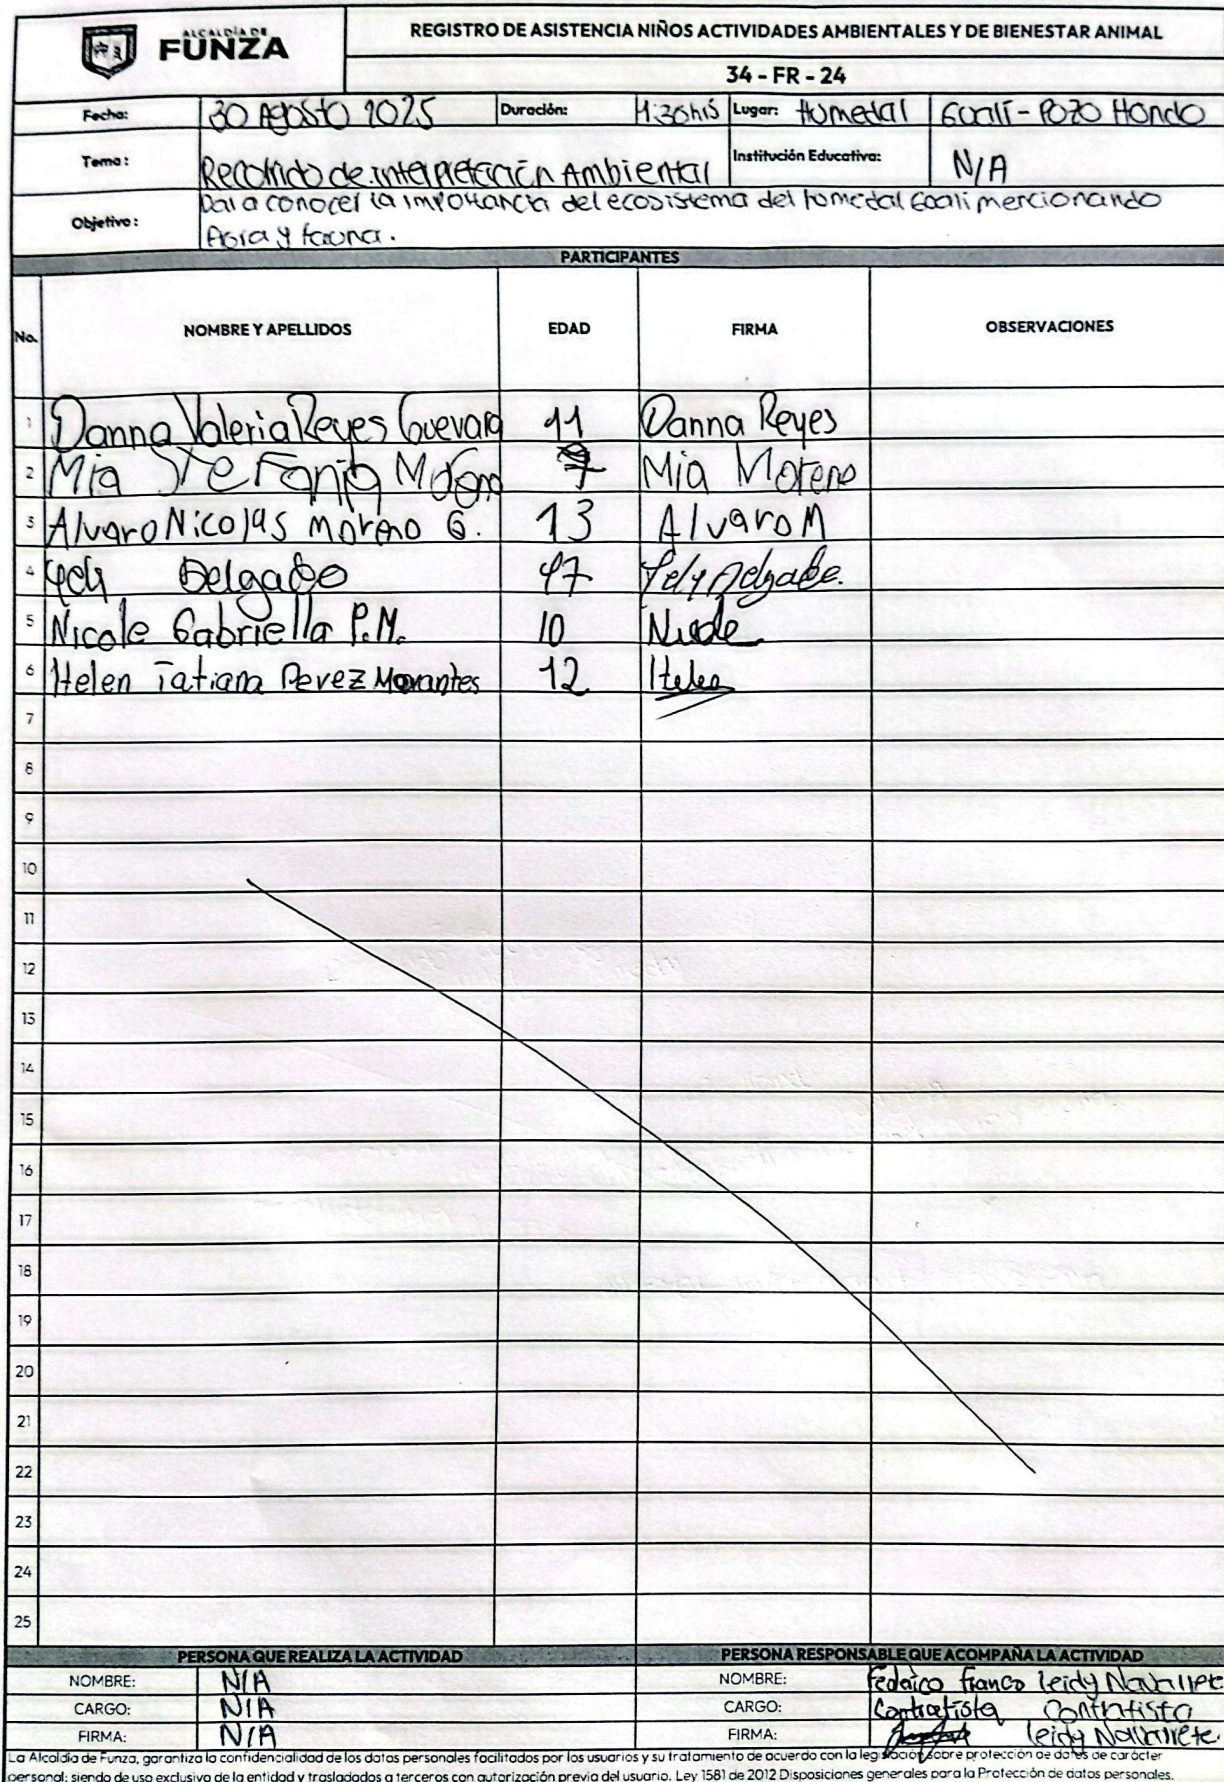 ALCALDÍA DE
FUNZA
REGISTRO DE ASISTENCIA NIÑOS ACTIVIDADES AMBIENTALES Y DE BIENESTAR ANIMAL
34 - FR - 24
Fecha: 30 Agosto 2025 Duración: 4:30hrs Lugar: Humedal Gualí - Pozo Hondo
Tema: Recorrido de interpretación Ambiental Institución Educativa: N/A
Objetivo: Dar a conocer la importancia del ecosistema del humedal Guali mencionando
flora y fauna.
PARTICIPANTES
No. NOMBRE Y APELLIDOS EDAD FIRMA OBSERVACIONES
1 Danna Valeria Reyes Guevara 11 Danna Reyes
2 Mia Stefania Moreno 7 Mia Moreno
3 Alvaro Nicolas moreno G. 13 Alvaro M
4 Delgado 47 Delgado.
5 Nicole Gabriella P.M. 10 Nicole
6 Helen Tatiana Perez Morantes 12 Helen
7
8
9
10
11
12
13
14
15
16
17
18
19
20
21
22
23
24
25
PERSONA QUE REALIZA LA ACTIVIDAD PERSONA RESPONSABLE QUE ACOMPAÑA LA ACTIVIDAD
NOMBRE: N/A NOMBRE: Federico Franco Leidy Navarrete
CARGO: N/A CARGO: Contratista Contratista
FIRMA: N/A FIRMA: Leidy Navarrete
La Alcaldía de Funza, garantiza la confidencialidad de los datos personales facilitados por los usuarios y su tratamiento de acuerdo con la legislación sobre protección de datos de carácter
personal; siendo de uso exclusivo de la entidad y trasladados a terceros con autorización previa del usuario. Ley 1581 de 2012 Disposiciones generales para la Protección de datos personales.